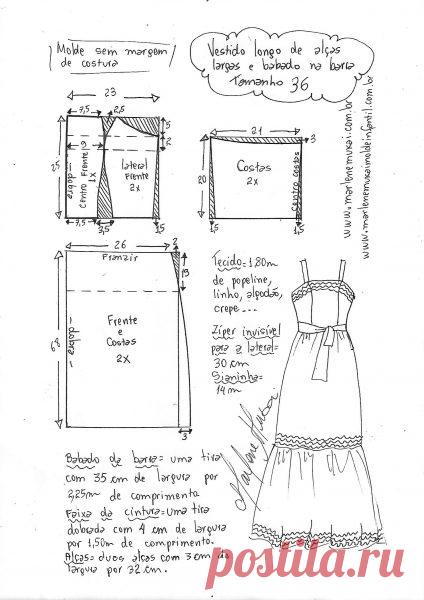 Molde sem margem
de costura
Vestido longo de alças
largas e babado na barra
Tamanho 36
www.marlenemukai.com.br
www.marlenemukaimoldeinfantil.com.br
23
7,5
2,5
5
2
25
dobra
Centro Frente
1x
lateral
Frente
2x
7,5
3,5
1,5
21
3
20
Costas
2x
Centro costas
1,5
1,5
26
2
Franzir
19
68
dobra
Frente
e
Costas
2x
3
Tecido = 1,80m
de popeline,
linho, algodão,
crepe...
Zíper invisível
para a lateral=
30 cm
Sianinha=
14m
Marlene Mukai
Babado da barra = uma tira
com 35 cm de largura por
2,25m de comprimento
Faixa da cintura = uma tira
dobrada com 4 cm de largura
por 1,50m de comprimento.
Alças = duas alças com 3 cm de
largura por 32 cm.
postila.ru